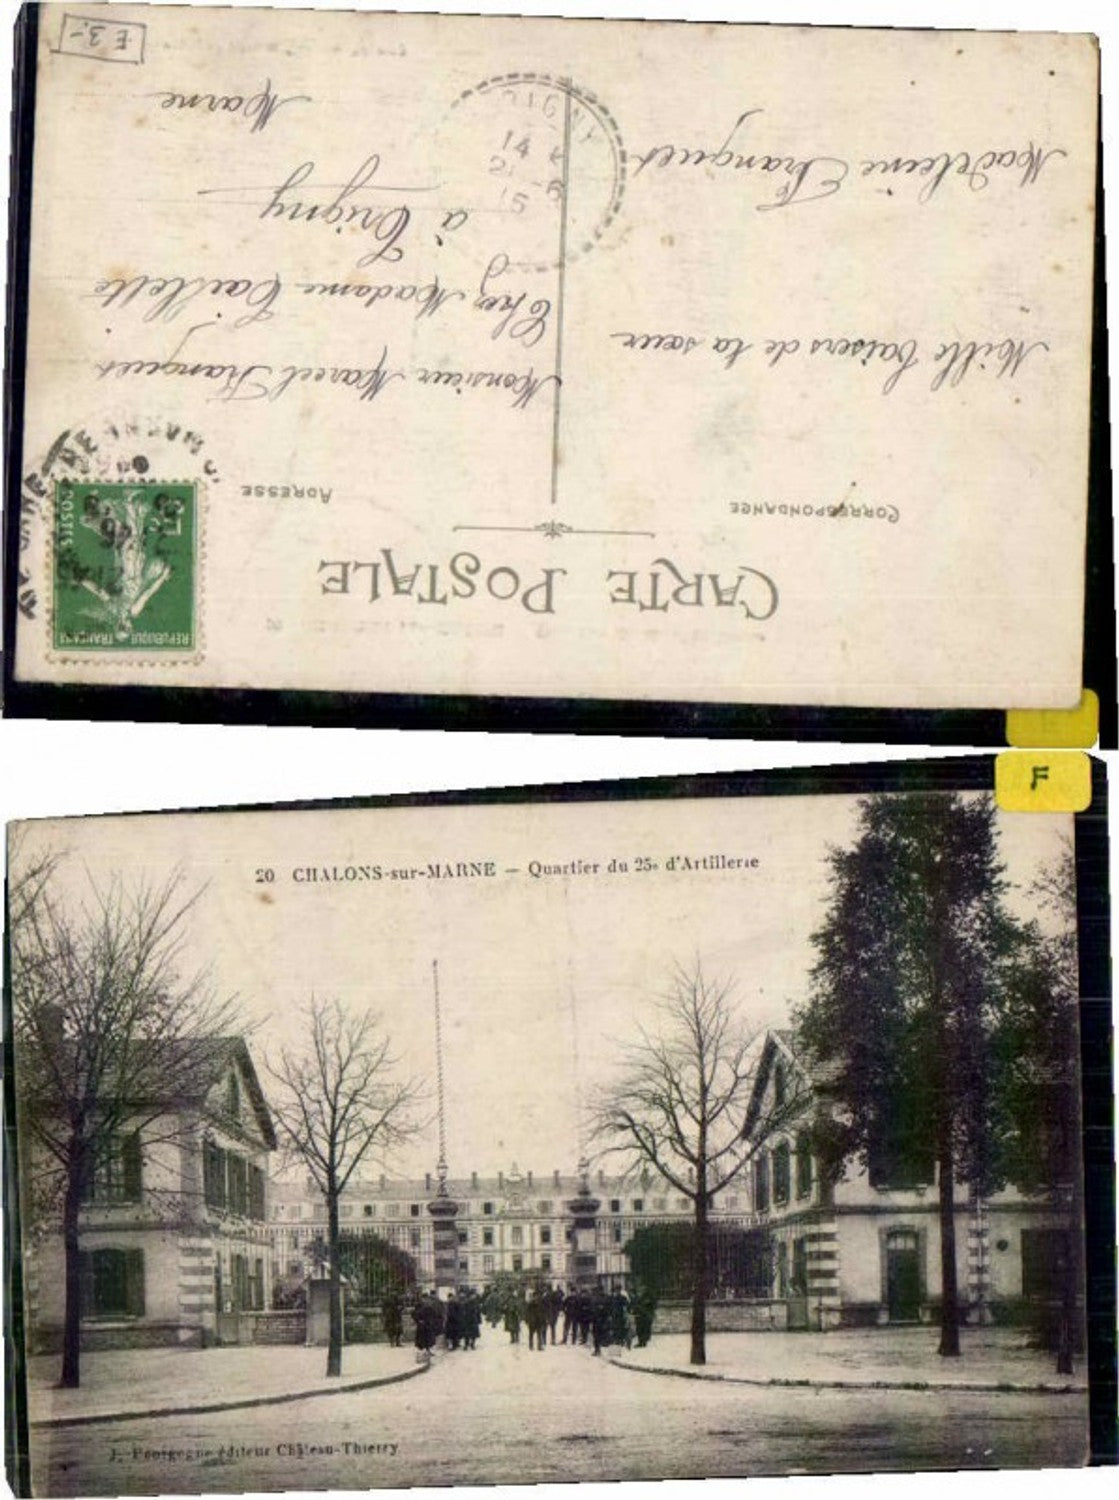 CARTE POSTALE
CORRESPONDANCE
ADRESSE
Mille baisers de ta sœur
Madeleine Franquet
Monsieur Marcel Franquet
Chez Madame Taillette
à Trigny
Marne
RÉPUBLIQUE FRANÇAISE
POSTES
14
6
15
£ 3.-
F
20 CHALONS-sur-MARNE — Quartier du 25e d'Artillerie
J. Bourgogne éditeur Château-Thierry